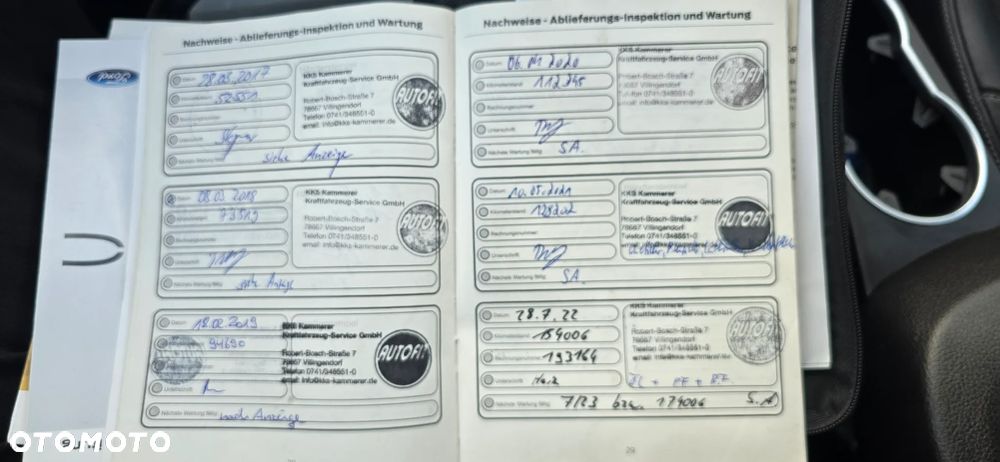 Ford
Nachweise - Ablieferungs-Inspektion und Wartung
Datum 28.03.2017
Kilometerstand 52551
Rechnungsnummer
Unterschrift
Nächste Wartung fällig siehe Anzeige
KKS Kammerer
Kraftfahrzeug-Service GmbH
Robert-Bosch-Straße 7
78667 Villingendorf
Telefon 0741/348551-0
email: info@kks-kammerer.de
AUTOFIT
Datum 08.03.2018
Kilometerstand 73519
Rechnungsnummer
Unterschrift
Nächste Wartung fällig siehe Anzeige
KKS Kammerer
Kraftfahrzeug-Service GmbH
Robert-Bosch-Straße 7
78667 Villingendorf
Telefon 0741/348551-0
email: info@kks-kammerer.de
AUTOFIT
Datum 18.02.2019
94690
Unterschrift
Nächste Wartung fällig nach Anzeige
KKS Kammerer
Kraftfahrzeug-Service GmbH
Robert-Bosch-Straße 7
78667 Villingendorf
Telefon 0741/348551-0
email: info@kks-kammerer.de
AUTOFIT
Nachweise - Ablieferungs-Inspektion und Wartung
Datum
Kilometerstand 112745
Rechnungsnummer
Unterschrift
Nächste Wartung fällig S.A.
KKS Kammerer
Kraftfahrzeug-Service GmbH
Robert-Bosch-Straße 7
78667 Villingendorf
Telefon 0741/348551-0
email: info@kks-kammerer.de
AUTOFIT
Datum 10.05.2021
Kilometerstand 128202
Rechnungsnummer
Unterschrift
Nächste Wartung fällig S.A.
KKS Kammerer
Kraftfahrzeug-Service GmbH
Robert-Bosch-Straße 7
78667 Villingendorf
Telefon 0741/348551-0
AUTOFIT
Datum 28.7.22
Kilometerstand 159006
Rechnungsnummer 193164
Unterschrift
Nächste Wartung fällig 7/23 bzw. 179006 S.A
KKS Kammerer
Kraftfahrzeug-Service GmbH
Robert-Bosch-Straße 7
78667 Villingendorf
Telefon 0741/348551-0
email: info@kks-kammerer.de
29
OTOMOTO